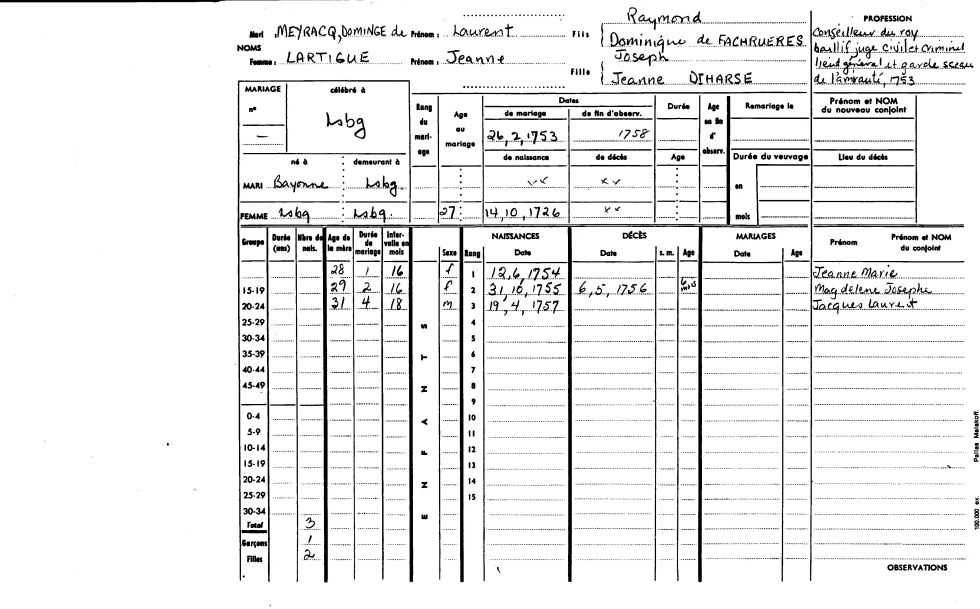 Raymond
PROFESSION
Mari MEYRACQ, DOMINGE de Prénom : Laurent Fils
Conseilleur du roy
NOMS
Dominique de FACHRUERES
baillif juge civil et criminel
Joseph
Femme : LARTIGUE Prénom : Jeanne Fille
lieut général et garde sceau
Jeanne DIHARSE
de l'amirauté, 1753
MARIAGE célébré à
n° Lsbg
—
Rang du mari- age
Age au mariage
Dates
de mariage de fin d'observ.
26, 2, 1753 1758
Durée
Age en fin d' observ.
Remariage le
Prénom et NOM
du nouveau conjoint
né à demeurant à
de naissance de décès Age
Durée du veuvage
Lieu du décès
MARI Bayonne Lsbg.
en
FEMME Lsbg Lsbg. 27 14, 10, 1726
mois
Groupe Durée (ans) Nbre de nais. Age de la mère Durée de mariage Inter- valle en mois
ENFANTS
Sexe Rang NAISSANCES Date DÉCÈS Date s. m. Age MARIAGES Date Age Prénom Prénom et NOM du conjoint
28 1 16 f 1 12, 6, 1754 Jeanne Marie
15-19 29 2 16 f 2 31, 10, 1755 6, 5, 1756 6 mois Magdelene Josephe
20-24 31 4 18 m 3 19, 4, 1757 Jacques Laurent
25-29 4
30-34 5
35-39 6
40-44 7
45-49 8
9
0-4 10
5-9 11
10-14 12
15-19 13
20-24 14
25-29 15
30-34
Total 3
Garçons 1
Filles 2
OBSERVATIONS
100.000 ex. Pairias Malakoff.